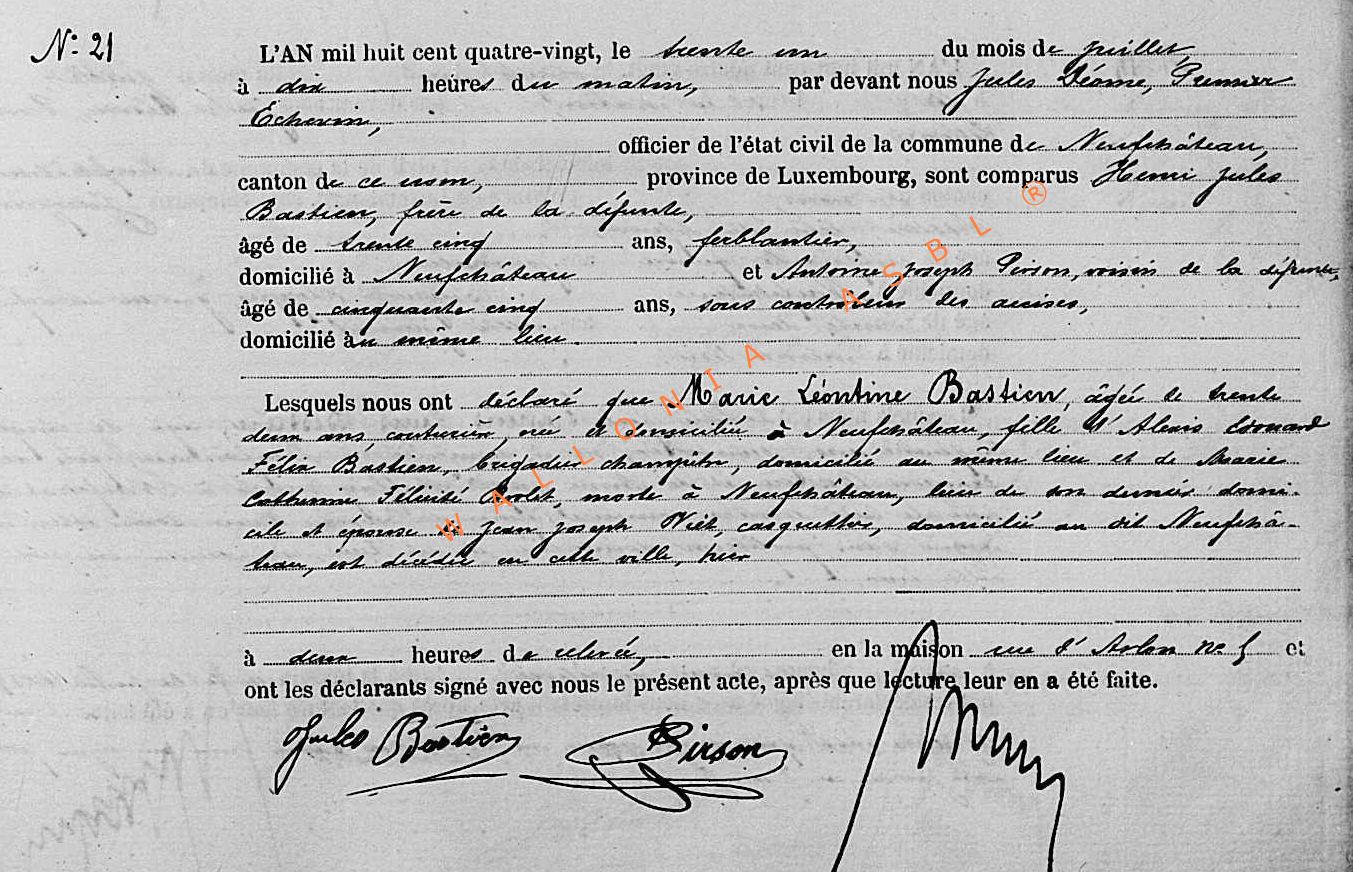 N° 21
L'AN mil huit cent quatre-vingt, le trente un du mois de juillet,
à dix heures du matin, par devant nous Jules Déome, Premier
Echevin,
officier de l'état civil de la commune de Neufchâteau,
canton de ce nom, province de Luxembourg, sont comparus Henri Jules
Bastien, frère de la défunte,
âgé de trente cinq ans, ferblantier,
domicilié à Neufchâteau et Antoine Joseph Pirson, voisin de la défunte,
âgé de cinquante cinq ans, sous contrôleur des accises,
domicilié au même lieu.
Lesquels nous ont déclaré que Marie Léontine Bastien, âgée de trente
deux ans, couturière, née et domiciliée à Neufchâteau, fille d'Alexis Edouard
Félix Bastien, brigadier champêtre, domicilié au même lieu et de Marie
Catherine Félicité morte à Neufchâteau, lieu de son dernier domi-
cile et épouse de Jean Joseph casquettier, domicilié au dit Neufchâ-
teau, est décédée en cette ville, hier
à deux heures de relevée, en la maison rue d'Arlon n° 5 et
ont les déclarants signé avec nous le présent acte, après que lecture leur en a été faite.
Jules Bastien Pirson
WALLONIA ASBL ®